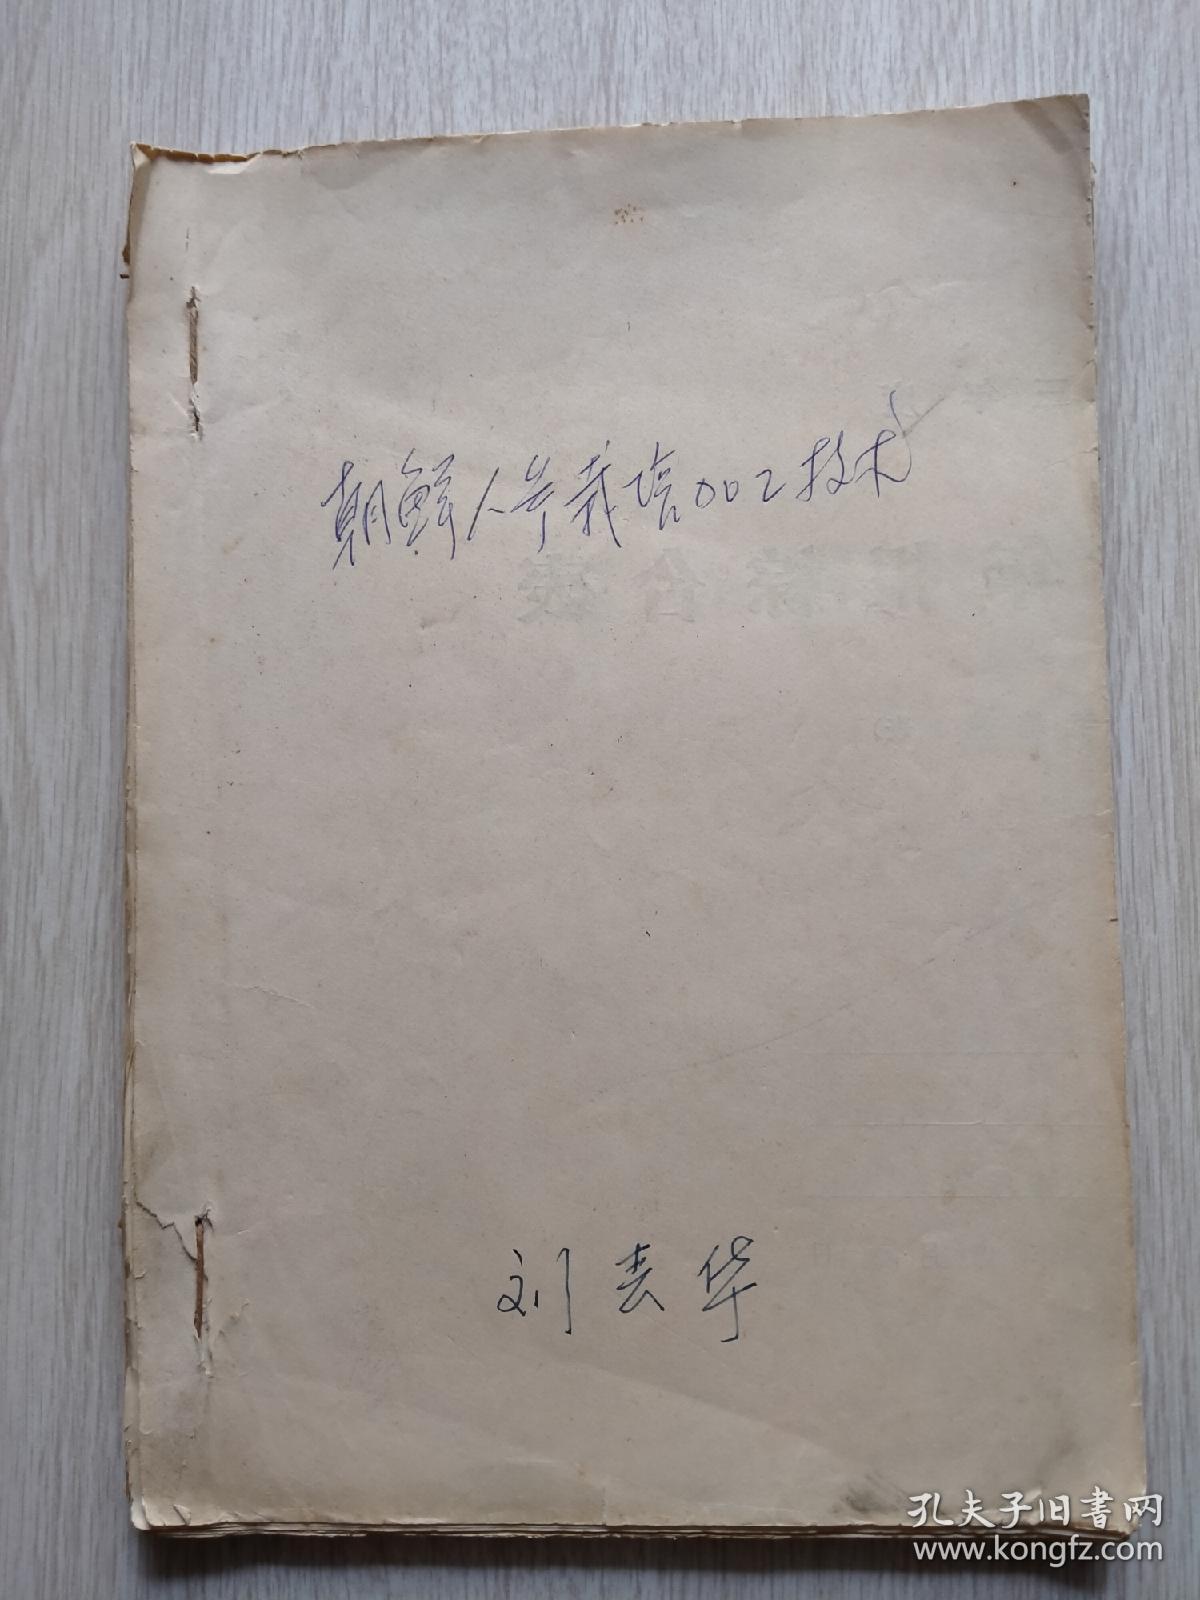 朝鲜人参栽培加工技术
刘春华
孔夫子旧書网
www.kongfz.com